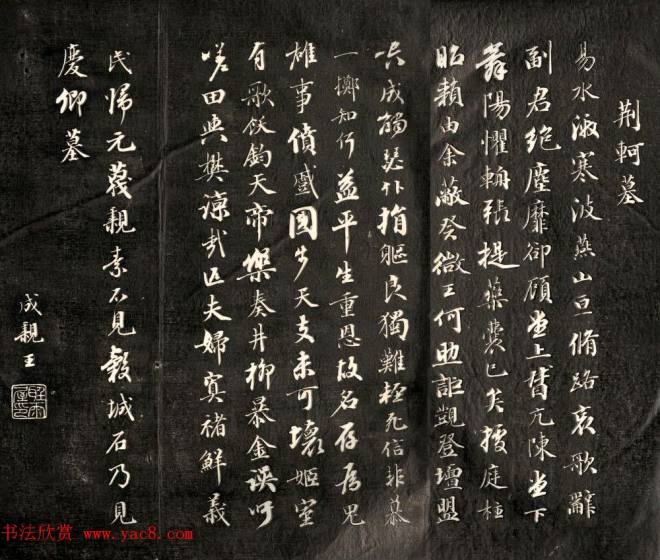 荆軻墓
易水㴑寒波燕山亘脩路哀歌辭
副君絶塵靡卻顧堂上督亢陳堂下
舞陽懼輈張提藥囊已矣擾庭柱
昭賴由余蔽癸微王何助詎覬登壇盟
成觸瑟仆捐軀良獨難輕死信非慕
一擲知何益平生重恩故名存屬兒
雄事僨蹙國步天支未可壞姬室
有歌飲鈞天帝樂奏井柳暴金誤呼
嗟田與樊諒哉匹夫婦寡褚鮮義
民歸元蔑親素不見穀城石乃見
慶卿墓
成親王
书法欣赏 www.yac8.com